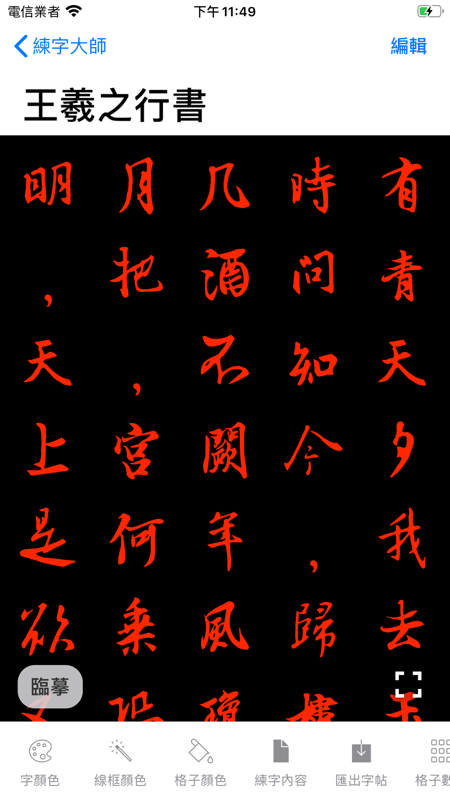 電信業者 下午11:49
練字大師 編輯
王羲之行書
明月几時有
，把酒問青
天，不知天
上宮闕今夕
是何年，我
欲乘風歸去
臨摹
又恐瓊樓玉
字顏色 線框顏色 格子顏色 練字內容 匯出字帖 格子數